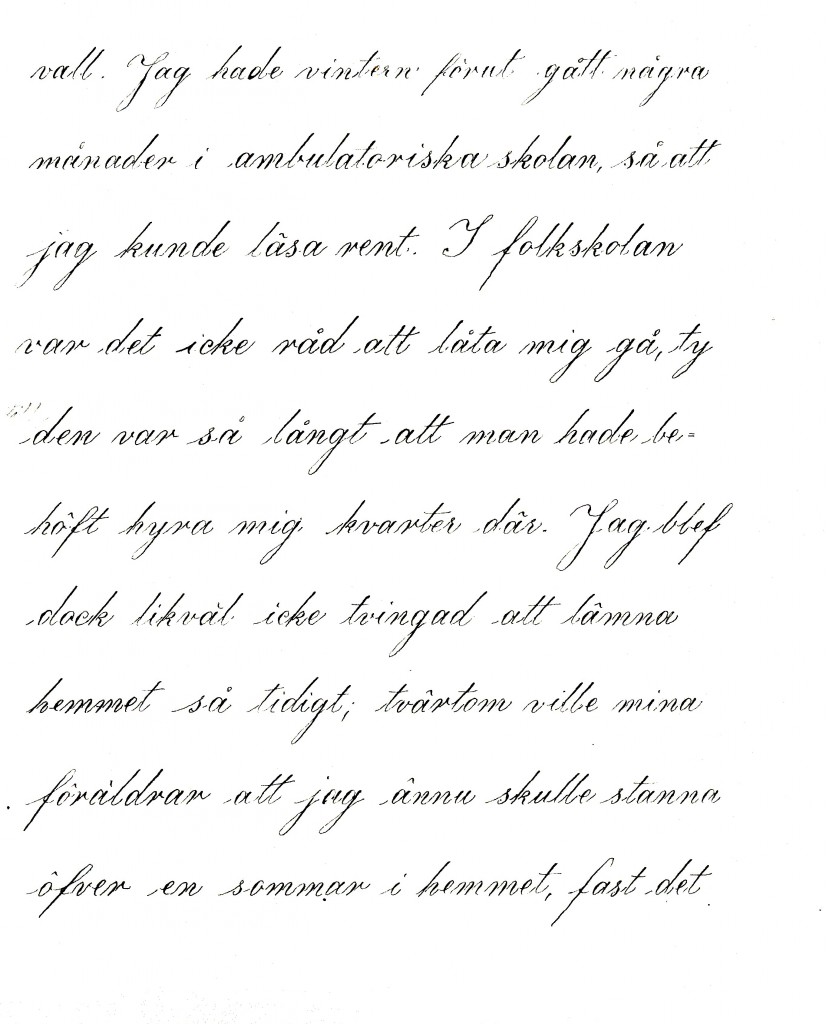 vall. Jag hade vintern förut gått några
månader i ambulatoriska skolan, så att
jag kunde läsa rent. I folkskolan
var det icke råd att låta mig gå, ty
den var så långt att man hade be=
höft hyra mig kvarter där. Jag blef
dock likväl icke tvingad att lämna
hemmet så tidigt; tvärtom ville mina
föräldrar att jag ännu skulle stanna
öfver en sommar i hemmet, fast det